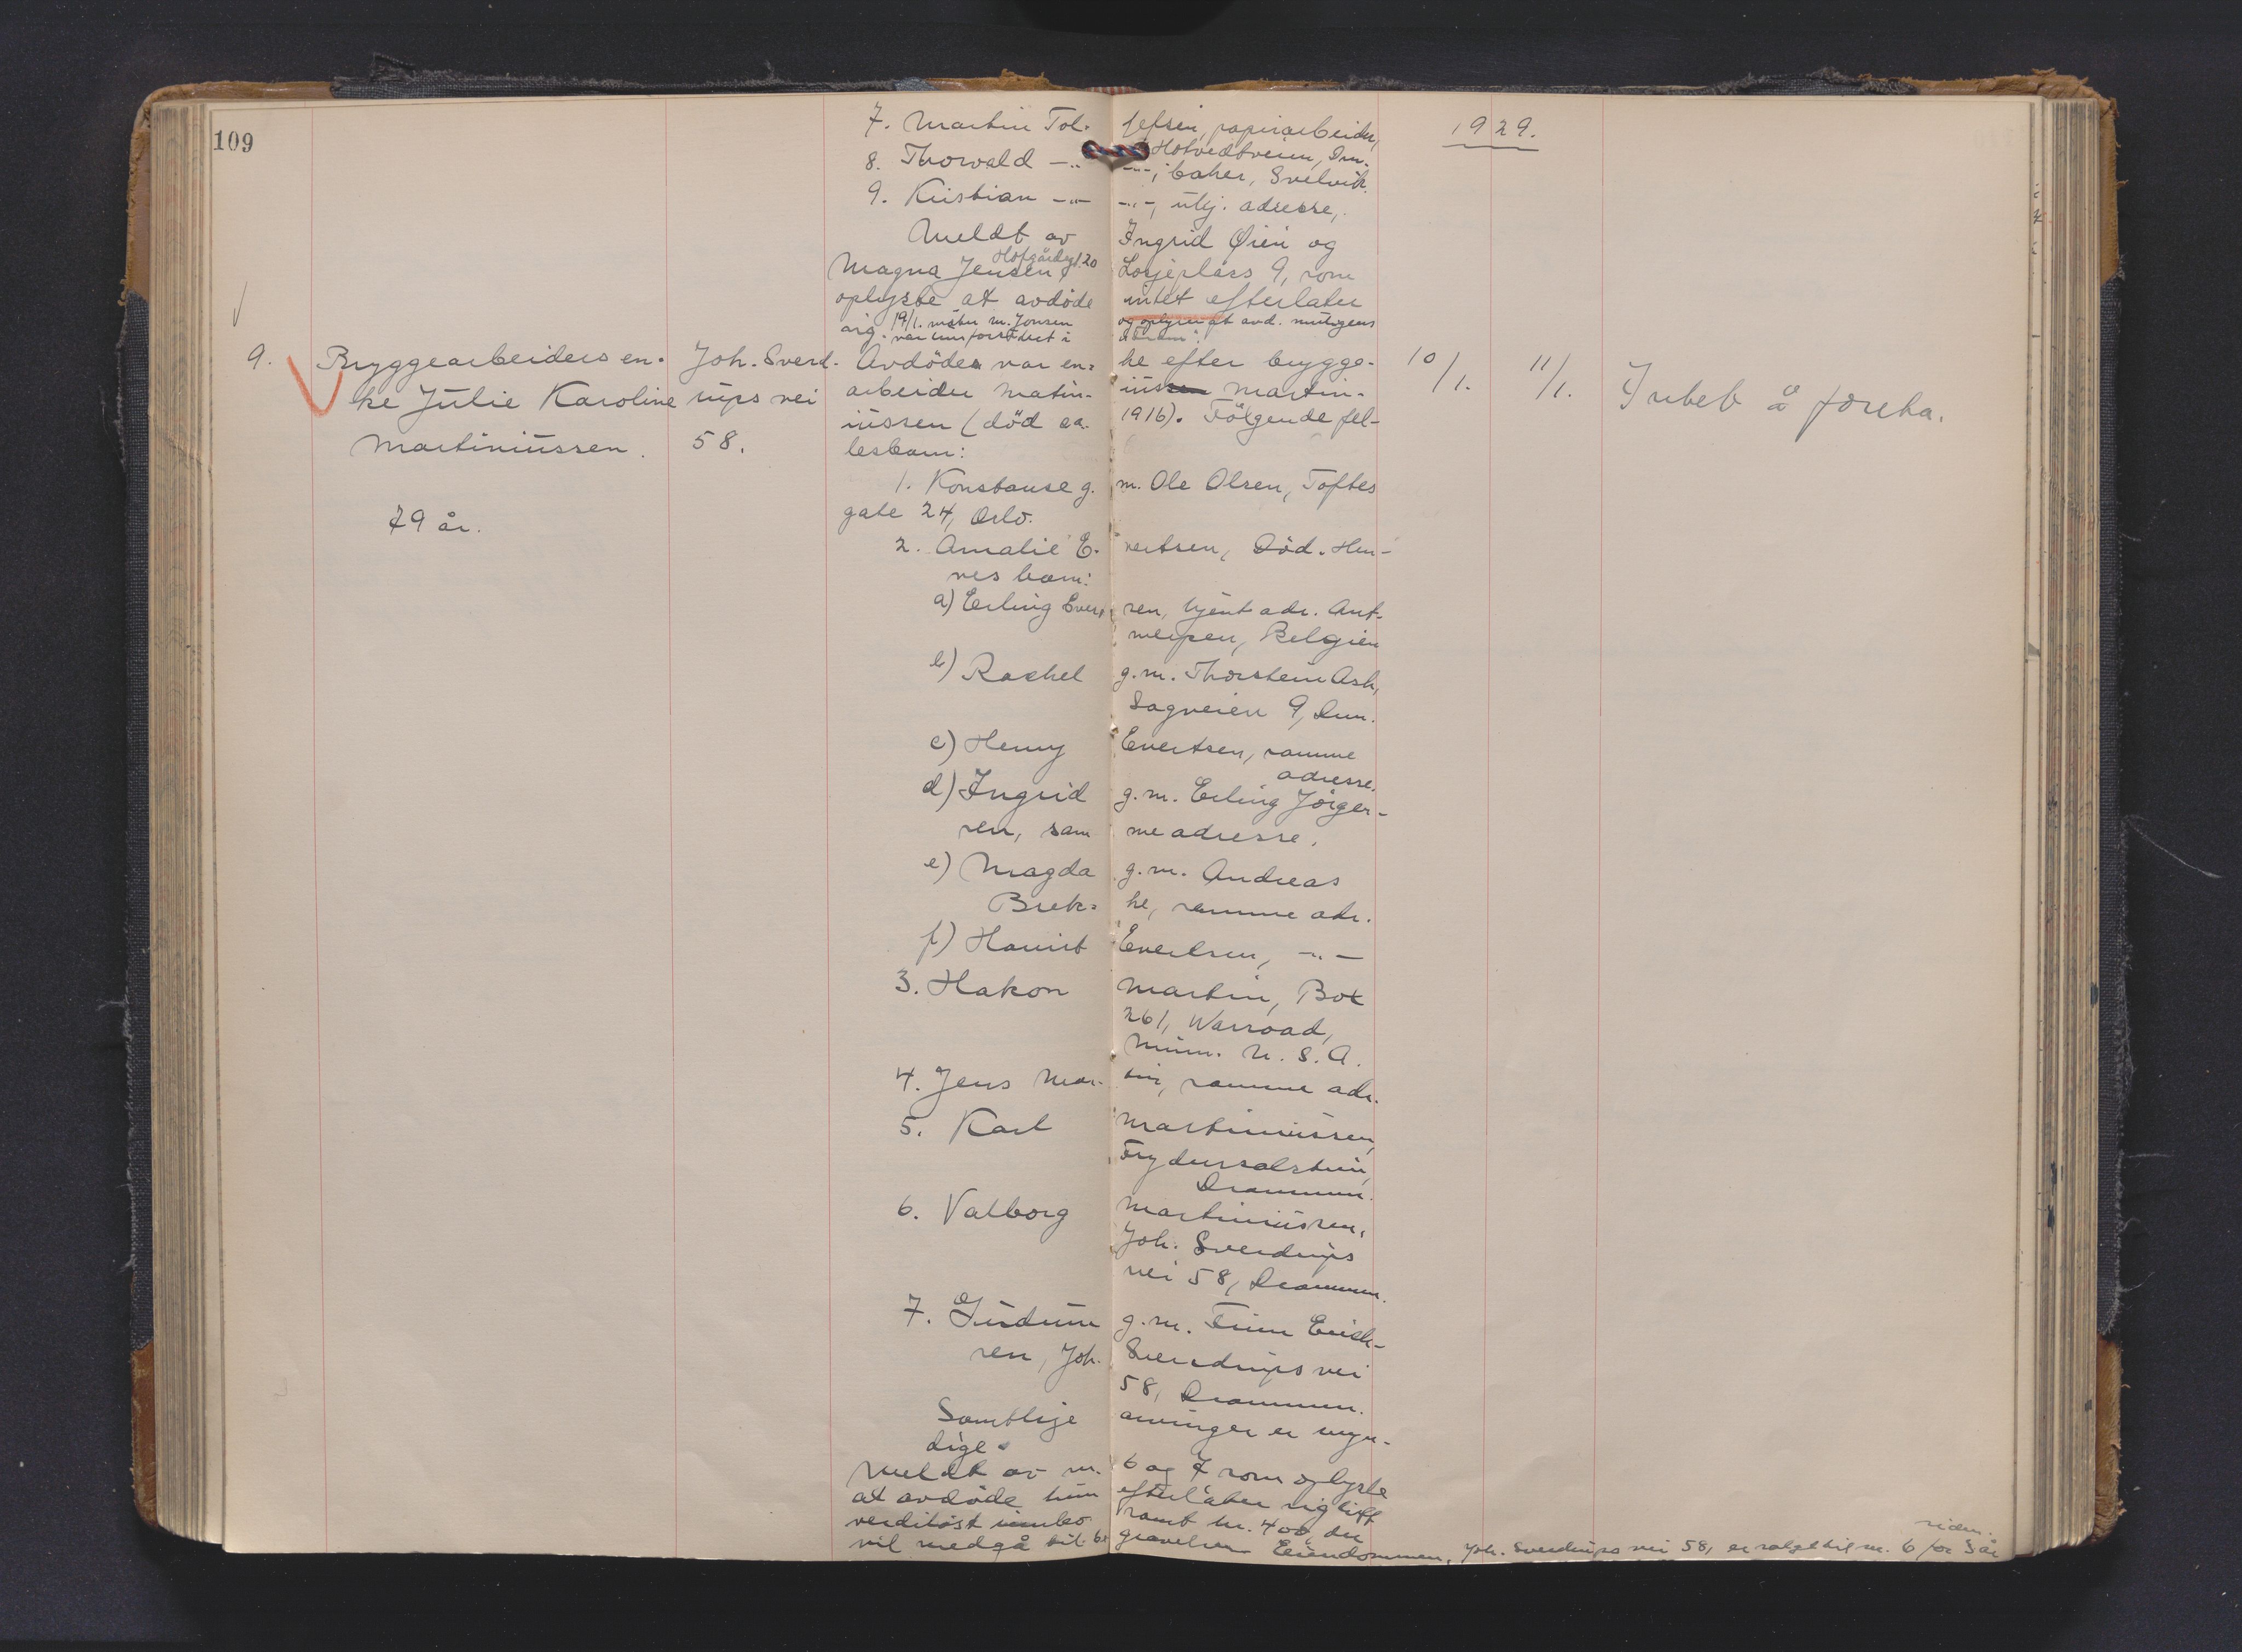 109
1929.
7. Martin Tol- lefsen, papirarbeider,
Hotvedtveien, Drm.
8. Thorvald -"- -"-, baker, Svelvik.
9. Kristian -"- -"-, ukj. adresse,
Meldt av Ingrid Øien og
Magna Jensen, Hofgårdsgt. 20 Losjeplass 9, som
oplyste at avdöde intet efterlater
sig. 19/1. møter M. Jensen og oplyser at avd. muligens
var uns forstdret i
9. Bryggearbeiders en- Joh. Sverd- Avdöde var en- ke efter brygge- 10/1. 11/1. Intet å foreta.
ke Julie Karoline rups vei arbeider Matin- iussen Martin-
Martiniussen. 58. iussen (död ca. 1916). Fölgende fel-
lesbarn:
1. Konstanse g. m. Ole Olsen, Toftes
79 år. gate 24, Oslo.
2. Amalie E- vertsen, Död. Hen-
nes barn:
a) Erling Evert sen, kjent adr. Ant-
werpen, Belgien
b) Rachel g.m. Thorstein Ask,
Sagveien 9, Drm.
c) Henny Evertsen, samme
adresse.
d) Ingrid g.m. Erling Jörgen-
sen, sam me adresse.
e) Magda g.m. Andreas
Brek- ke, samme adr.
f) Harriet Evertsen, -"-
3. Hakon Martin, Box
261, Warroad,
Minn. U.S.A.
4. Jens Mar- tin, samme adr.
5. Karl Martiniussen,
Frydensalstein,
Drammen.
6. Valborg Martiniussen,
Joh. Sverdrups
vei 58, Drammen.
7. Gudrun g.m. Finn Erick-
sen, Joh. Sverdrups vei
58, Drammen.
Samtlige arvinger er myn-
dige.
Meldt av nr. 6 og 7 som oplyste
at avdöde kun efterlater sig litt
verdilöst innbo samt kr. 400, der
vil medgå til be gravelsen Eiendommen, Joh. Sverdrups vei 58, er solgt til nr. 6 for 5 år
siden.